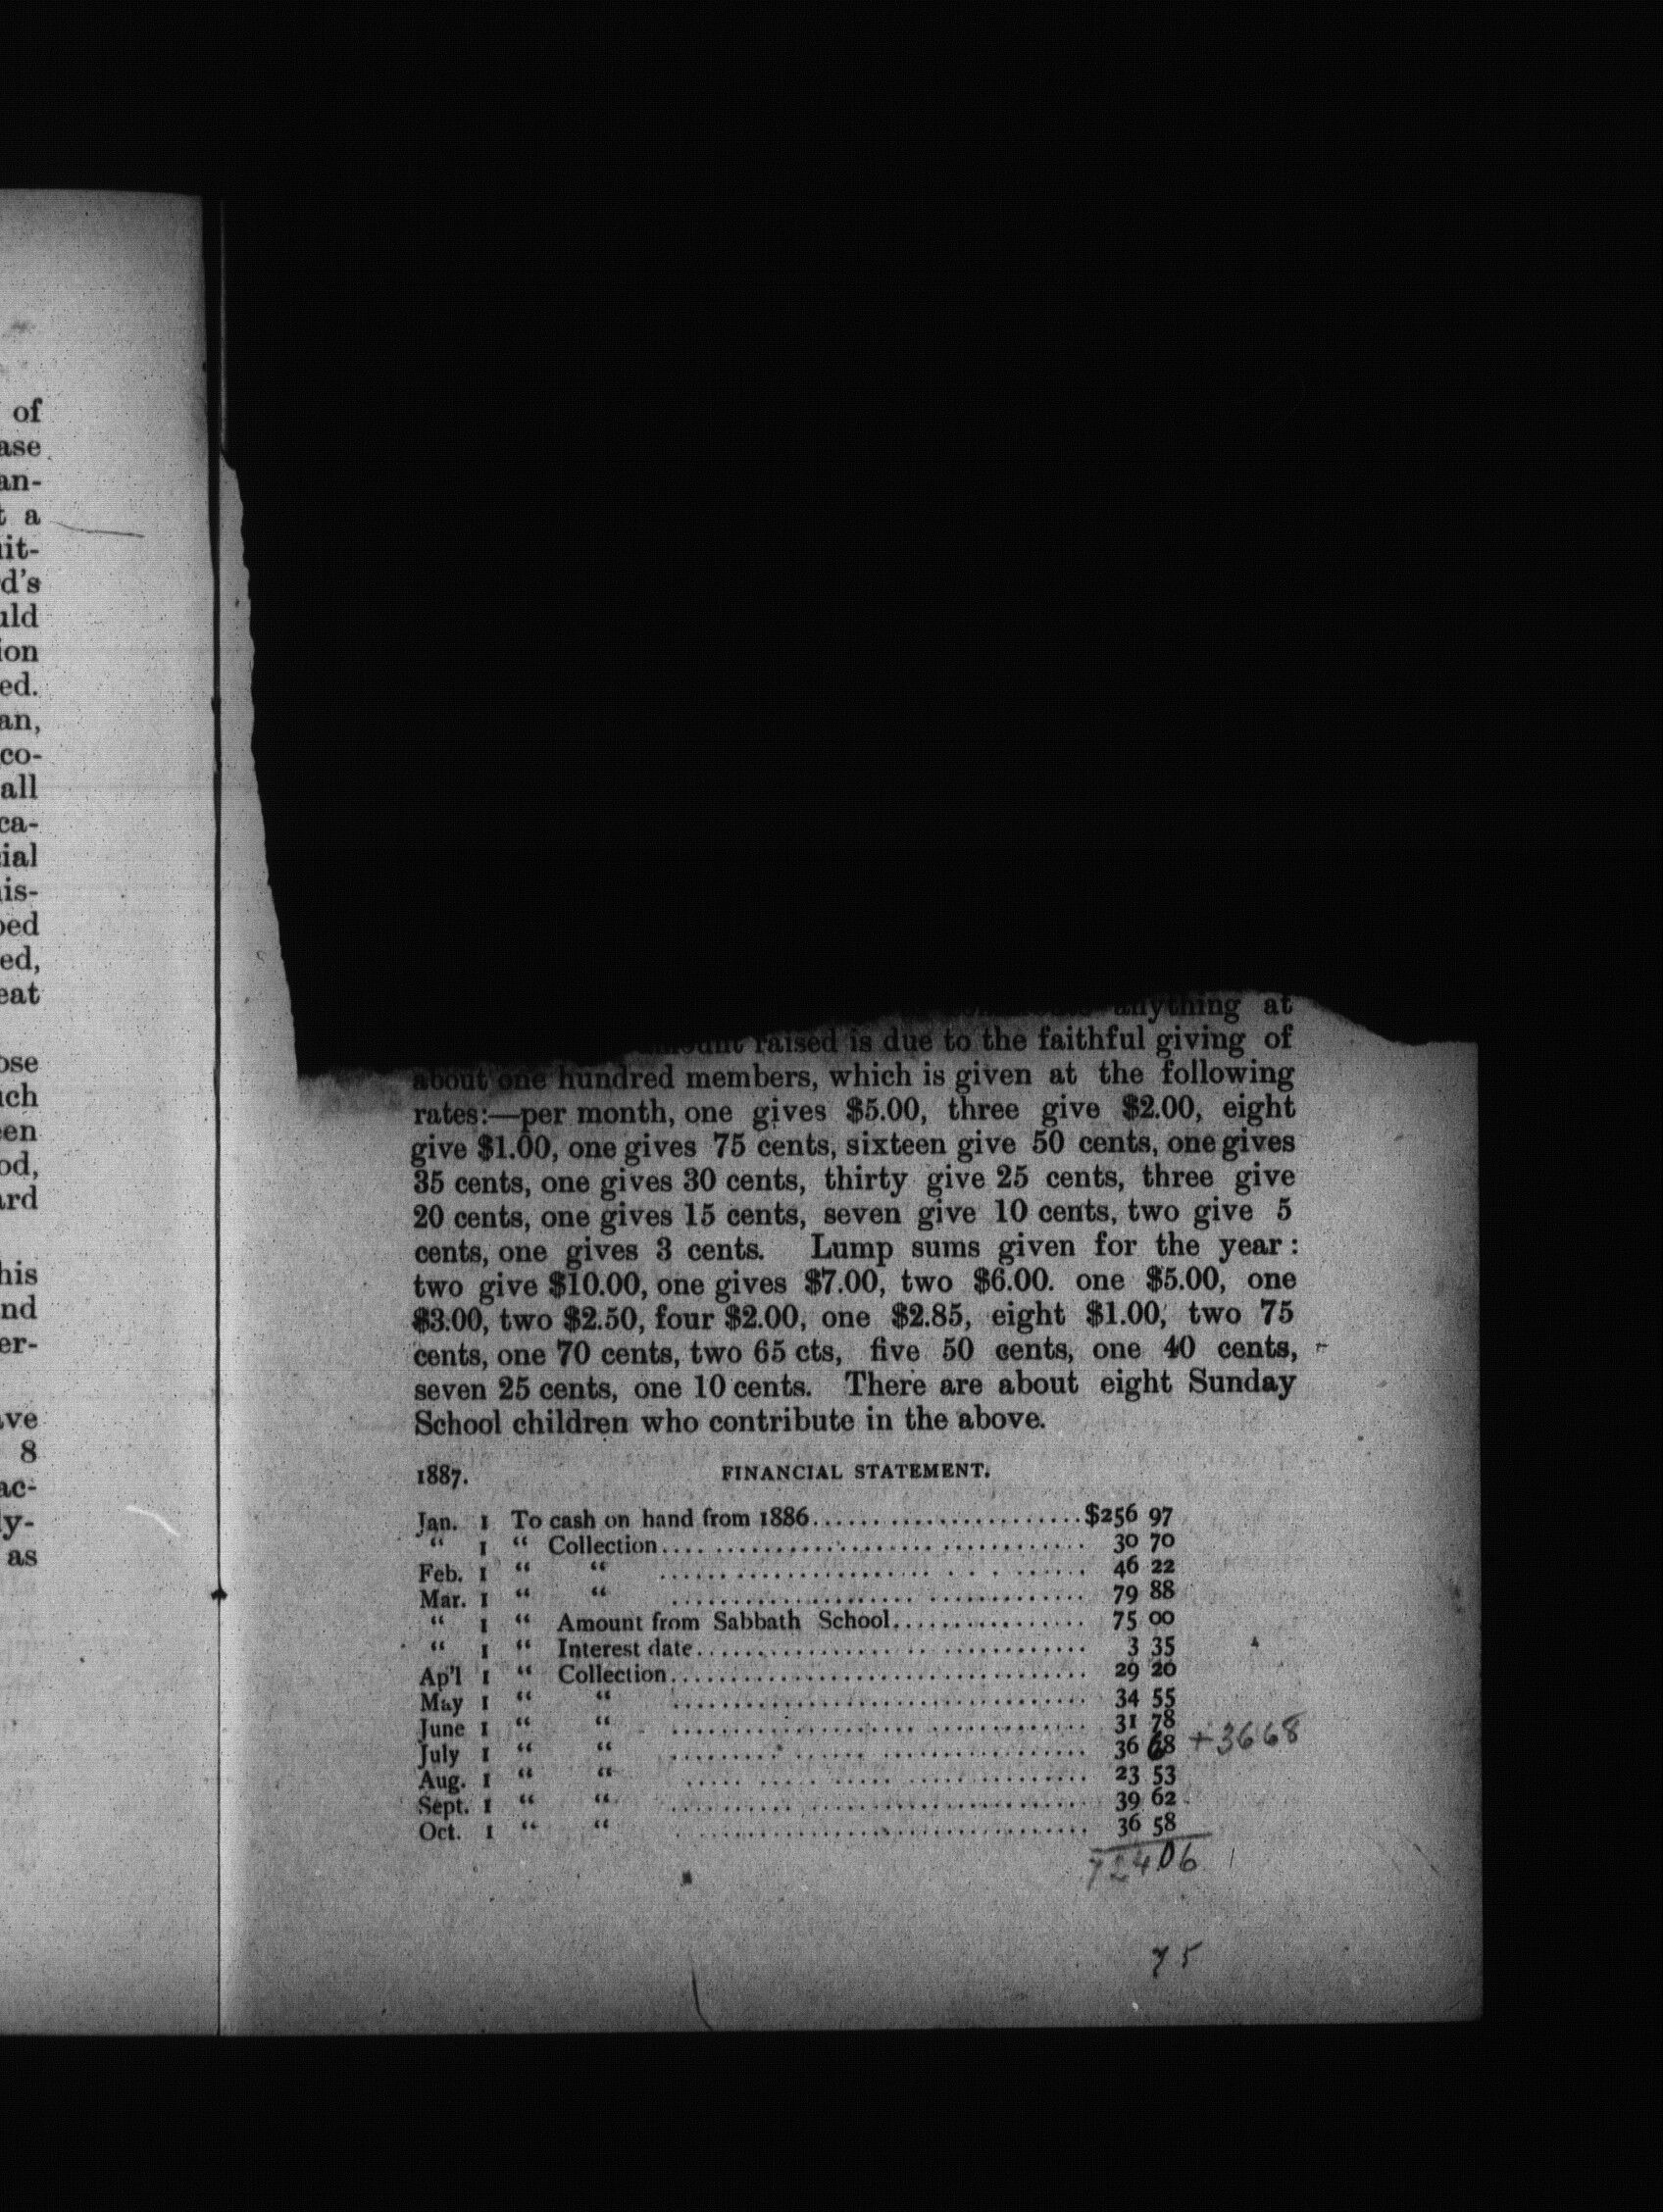 of
ase
an-
t a
uit-
d's
uld
ion
ed.
an,
co-
all
ca-
ial
is-
ped
ed,
eat
ose
ich
een
od,
ard
his
nd
er-
ave
8
ac-
ly-
as
anything at
amount raised is due to the faithful giving of
about one hundred members, which is given at the following
rates:—per month, one gives $5.00, three give $2.00, eight
give $1.00, one gives 75 cents, sixteen give 50 cents, one gives
35 cents, one gives 30 cents, thirty give 25 cents, three give
20 cents, one gives 15 cents, seven give 10 cents, two give 5
cents, one gives 3 cents. Lump sums given for the year:
two give $10.00, one gives $7.00, two $6.00. one $5.00, one
$3.00, two $2.50, four $2.00, one $2.85, eight $1.00, two 75
cents, one 70 cents, two 65 cts, five 50 cents, one 40 cents,
seven 25 cents, one 10 cents. There are about eight Sunday
School children who contribute in the above.
1887. FINANCIAL STATEMENT.
Jan. 1 To cash on hand from 1886........................$256 97
" 1 " Collection...................................... 30 70
Feb. 1 " " ...................................... 46 22
Mar. 1 " " ...................................... 79 88
" 1 " Amount from Sabbath School................ 75 00
" 1 " Interest date................................... 3 35
Ap'l 1 " Collection...................................... 29 20
May 1 " " ...................................... 34 55
June 1 " " ...................................... 31 78
July 1 " " ...................................... 36 68 +3668
Aug. 1 " " ...................................... 23 53
Sept. 1 " " ...................................... 39 62
Oct. 1 " " ...................................... 36 58
72406
75